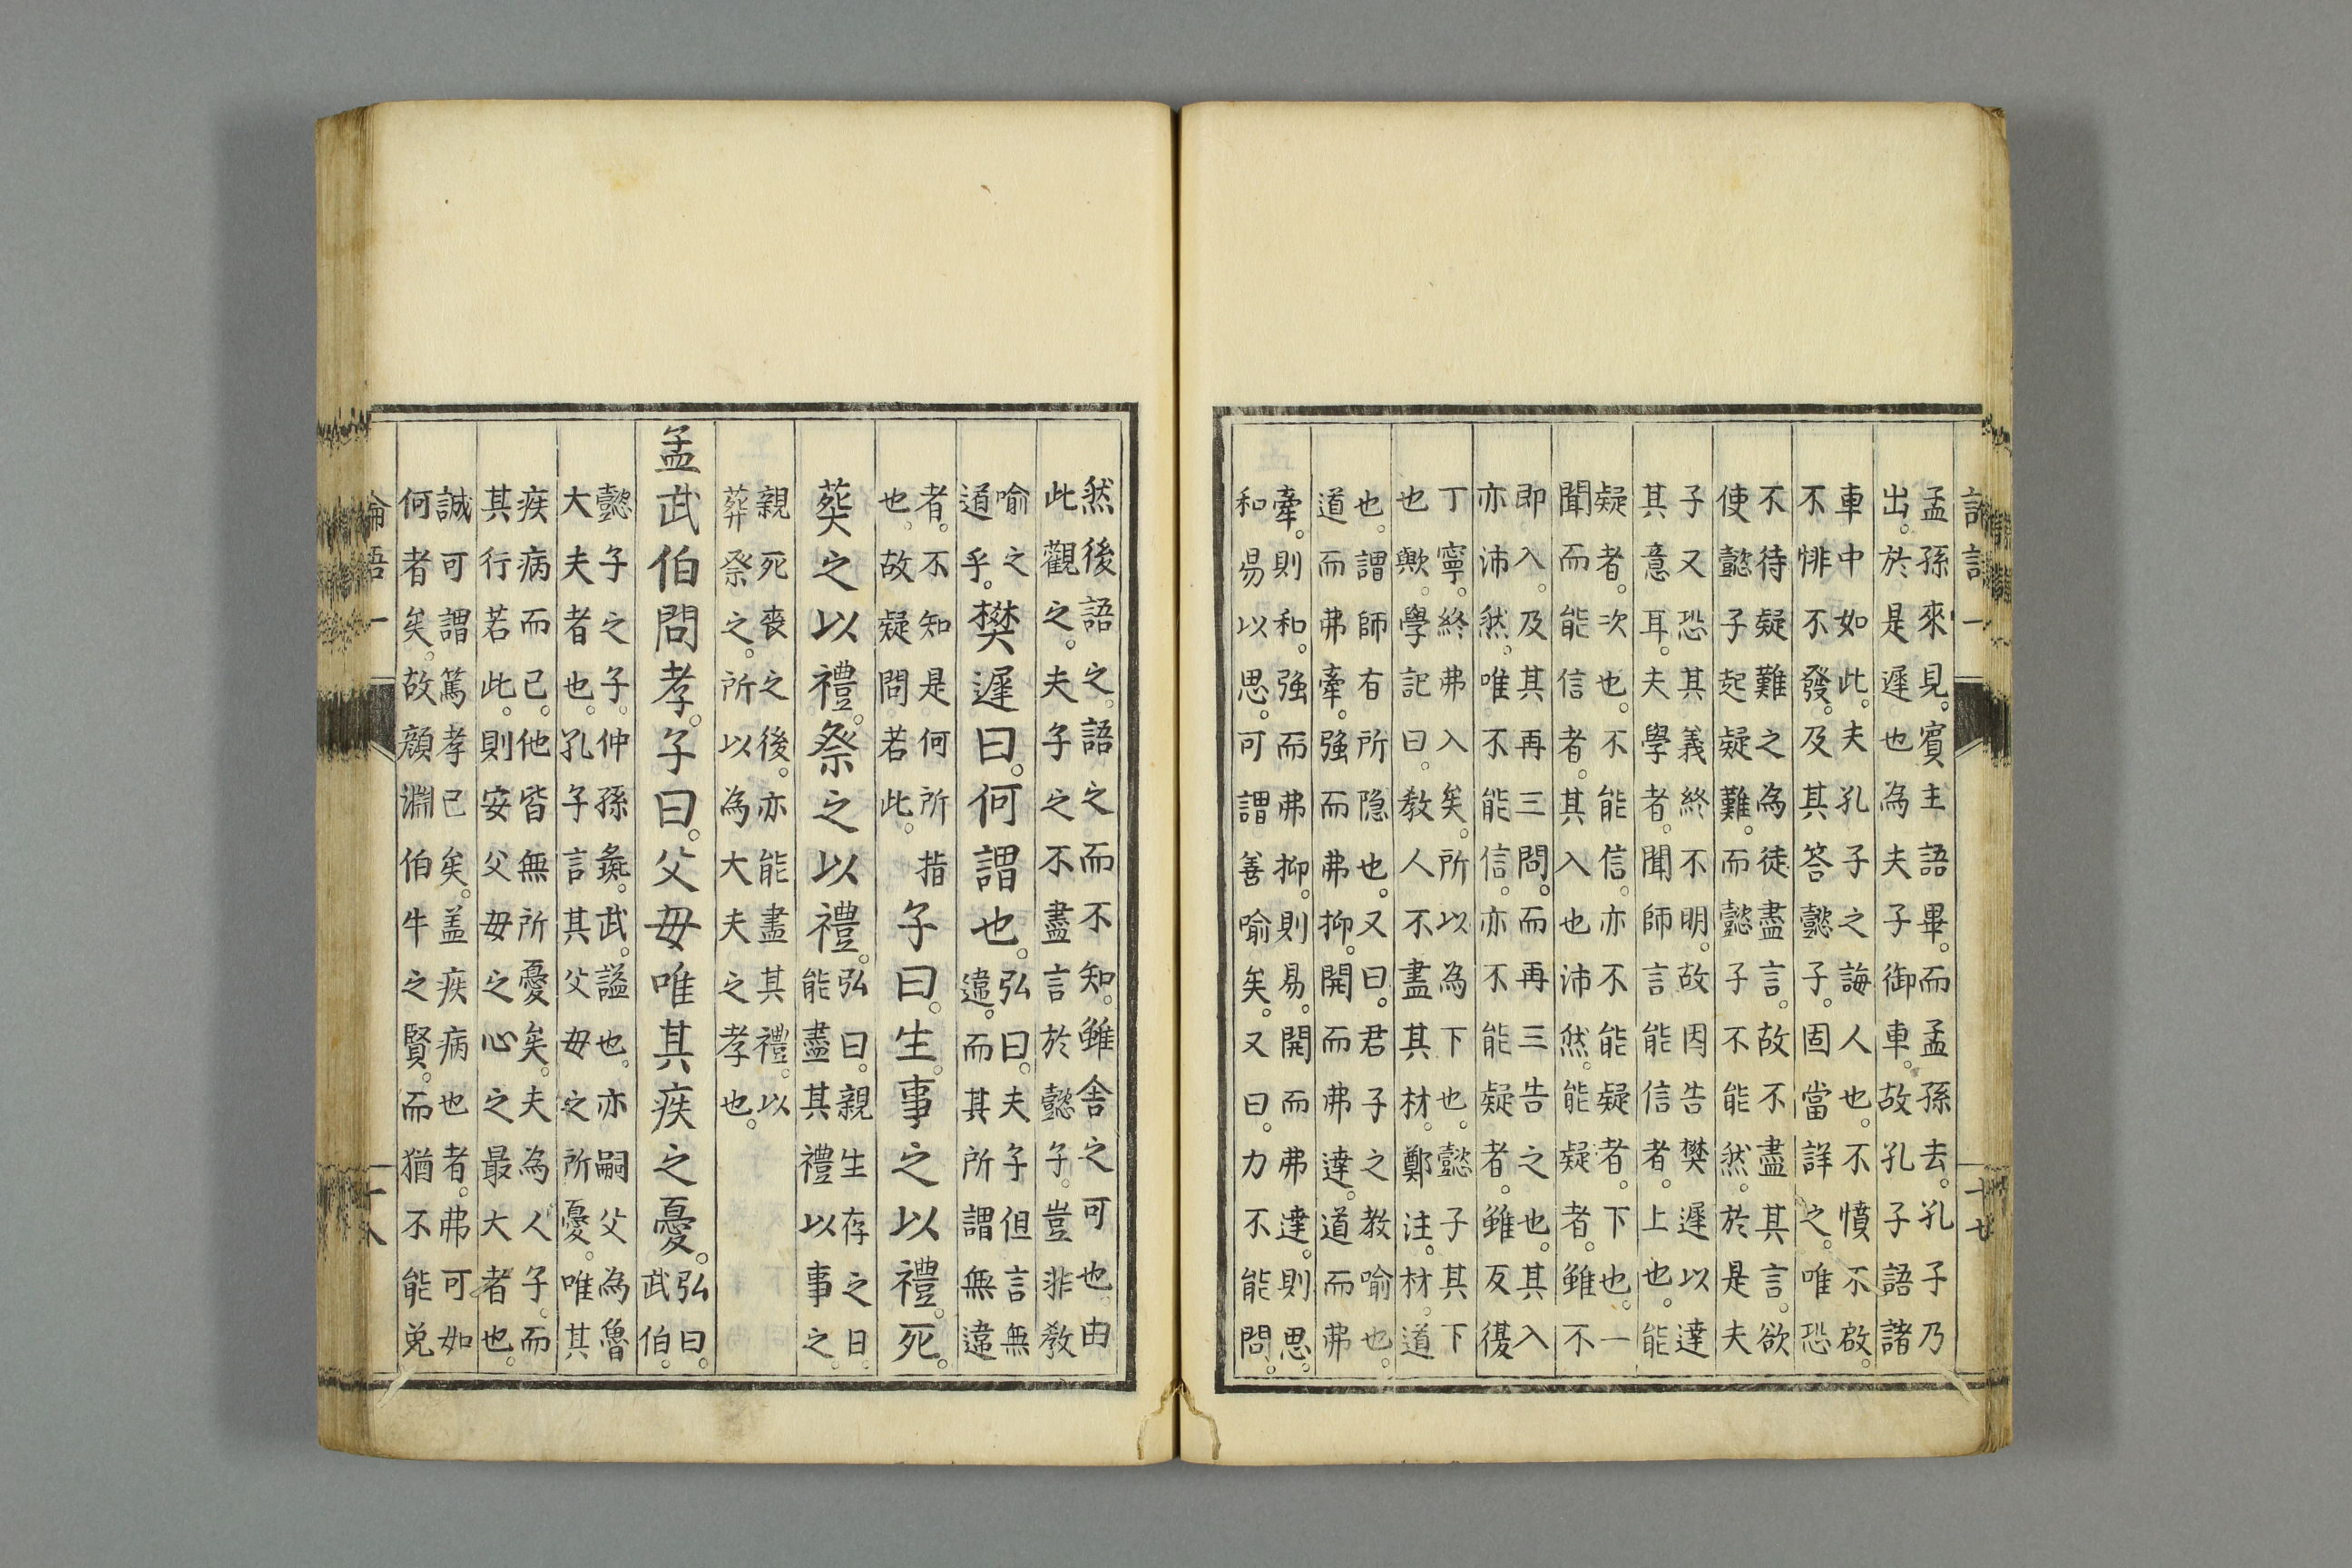 孟孫來見。賓主語畢。而孟孫去。孔子乃
出。於是遲也為夫子御車。故孔子語諸
車中如此。夫孔子之誨人也。不憤不啟。
不悱不發。及其答懿子。固當詳之。唯恐
不待疑難之為徒盡言。故不盡其言。欲
使懿子起疑難。而懿子不能然。於是夫
子又恐其義終不明。故因告樊遲以達
其意耳。夫學者。聞師言能信者。上也。能
疑者。次也。不能信。亦不能疑者。下也。一
聞而能信者。其入也沛然。能疑者。雖不
即入。及其再三問。而再三告之也。其入
亦沛然。唯不能信。亦不能疑者。雖反復
丁寧。終弗入矣。所以為下也。懿子其下
也歟。學記曰。教人不盡其材。鄭注。材。道
也。謂師有所隐也。又曰。君子之教喻也。
道而弗牽。強而弗抑。開而弗達。道而弗
牽。則和。強而弗抑。則易。開而弗達。則思。
和易以思。可謂善喻矣。又曰。力不能問。
然後語之。語之而不知。雖舍之可也。由
此觀之。夫子之不盡言於懿子。豈非教
喻之
道乎。
樊遲曰。何謂也。
弘曰。夫子但言無
違。而其所謂無違
者。不知是何所指
也。故疑問若此。
子曰。生。事之以禮。死。
葬之以禮。祭之以禮。
弘曰。親生存之日。
能盡其禮以事之。
親死喪之後。亦能盡其禮。以
葬祭之。所以為大夫之孝也。
孟武伯問孝。子曰。父母唯其疾之憂。
弘曰。
武伯。
懿子之子。仲孫彘。武。謚也。亦嗣父為魯
大夫者也。孔子言其父母之所憂。唯其
疾病而已。他皆無所憂矣。夫為人子。而
其行若此。則安父母之心之最大者也。
誠可謂篤孝已矣。盖疾病也者。弗可如
何者矣。故顏淵伯牛之賢。而猶不能免